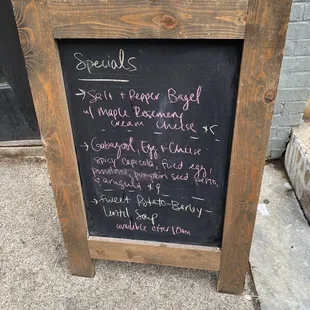 Specials
→ Salt + Pepper Bagel
w/ Maple Rosemary
cream cheese $5
→ Gabagool, Egg + Cheese
spicy capicola, fried egg,
pumpkin seed pesto,
arugula $9
→ Sweet Potato-Barley-
Lentil Soup
available after 10am